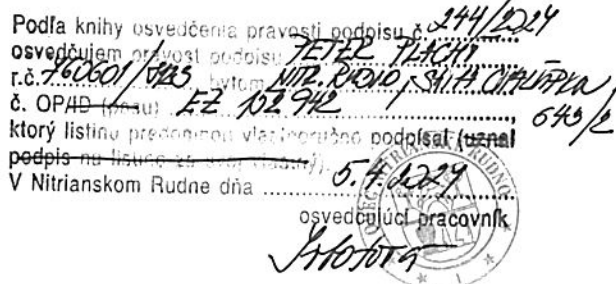 Podľa knihy osvedčenia pravosti podpisu č. 244/2024
osvedčujem pravosť podpisu PETER PLACHÝ
r.č. 760601/ bytom NITR. RUDNO,
643/2
č. OP/ID (pasu) EZ 102 942
ktorý listinu predo mnou vlastnoručne podpísal (uznal
podpis na listine za svoj vlastný).
V Nitrianskom Rudne dňa 5.4.2024
osvedčujúci pracovník